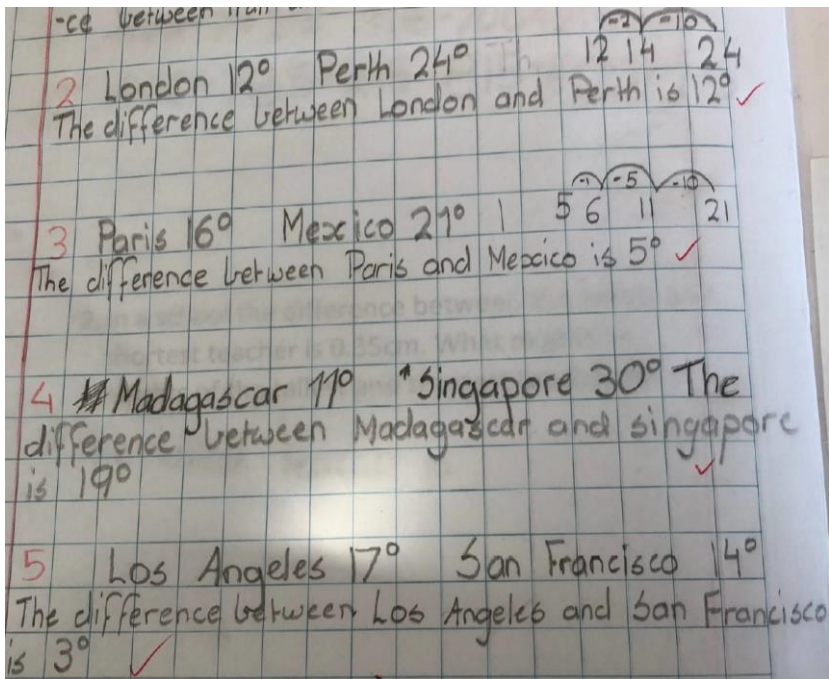 -ce between
-2 -10
12 14 24
2 London 12° Perth 24°
The difference between London and Perth is 12° ✓
-1 -5 -10
5 6 11 21
3 Paris 16° Mexico 21°
The difference between Paris and Mexico is 5° ✓
4 Madagascar 11° Singapore 30° The
difference between Madagascar and singapore
is 19° ✓
5 Los Angeles 17° San Francisco 14°
The difference between Los Angeles and San Francisco
is 3° ✓